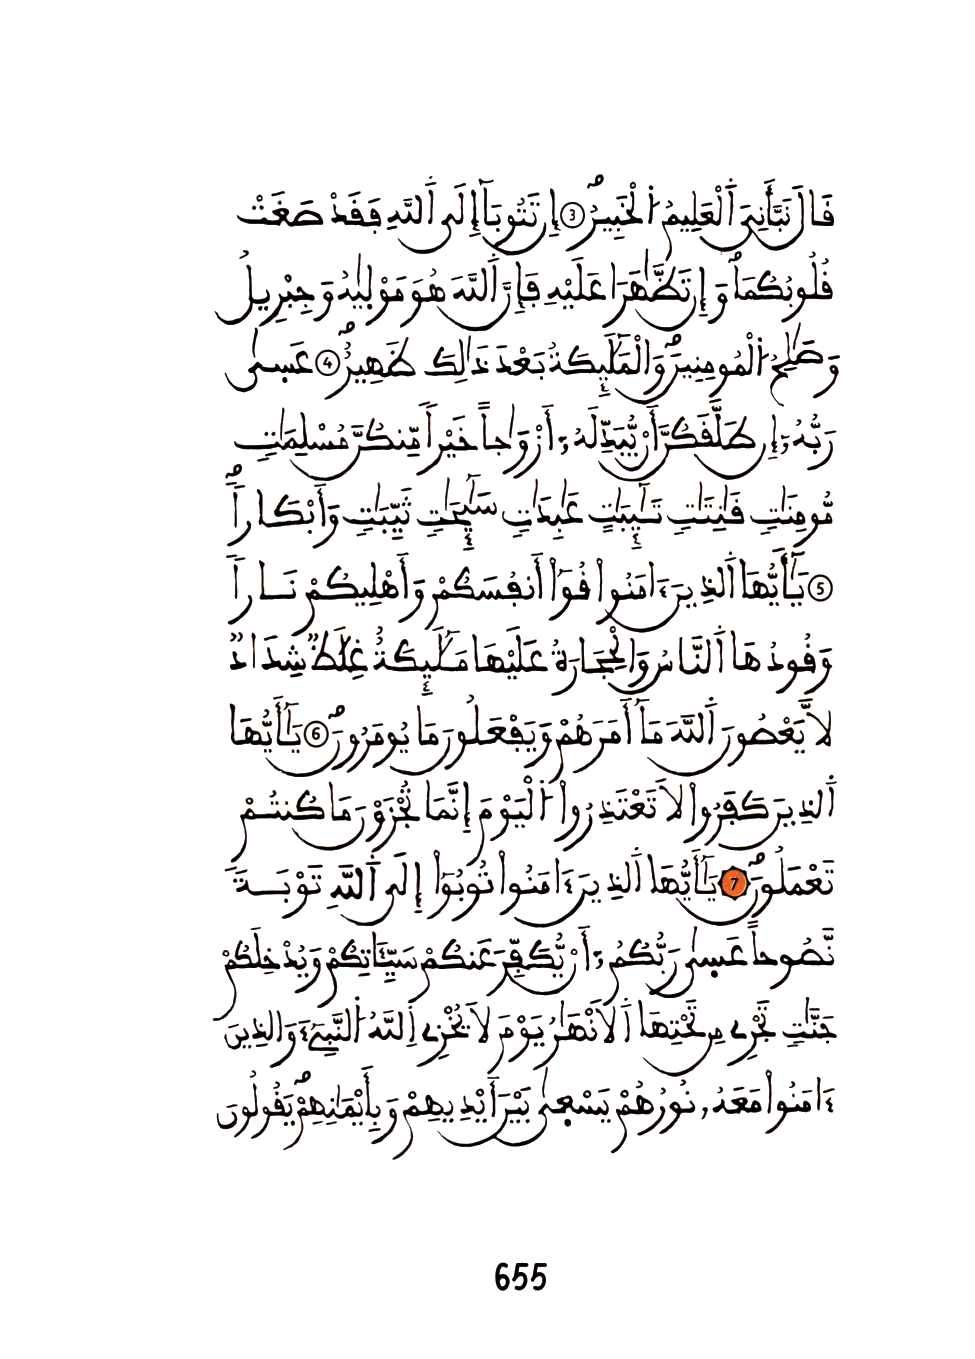 قَالَ نَبَّأَنِيَ اَ۬لْعَلِيمُ اُ۬لْخَبِيرُۖ 3 إِن تَتُوبَآ إِلَى اَ۬للَّهِ فَقَدْ صَغَتْ
قُلُوبُكُمَاۖ وَإِن تَظَّٰهَرَا عَلَيْهِ فَإِنَّ اَ۬للَّهَ هُوَ مَوْلٜيٰهُ وَجِبْرِيلُ
وَصَٰلِحُ اُ۬لْمُومِنِينَۖ وَالْمَلَٰٓئِكَةُ بَعْدَ ذَٰلِكَ ظَهِيرٌۖ 4 عَسٜىٰ
رَبُّهُۥٓ إِن طَلَّقَكُنَّ أَنْ يُّبَدِّلَهُۥٓ أَزْوَٰجاً خَيْراٗ مِّنكُنَّ مُسْلِمَٰتٖ
مُّومِنَٰتٖ قَٰنِتَٰتٖ تَٰٓئِبَٰتٍ عَٰبِدَٰتٖ سَٰٓئِحَٰتٖ ثَيِّبَٰتٖ وَأَبْكَاراٗۖ
5 يَٰٓأَيُّهَا اَ۬لذِينَ ءَامَنُواْ قُوٓاْ أَنفُسَكُمْ وَأَهْلِيكُمْ نَاراٗ
وَقُودُهَا اَ۬لنَّاسُ وَالْحِجَارَةُ عَلَيْهَا مَلَٰٓئِكَةٌ غِلَٰظٞ شِدَادٞ
لَّا يَعْصُونَ اَ۬للَّهَ مَآ أَمَرَهُمْ وَيَفْعَلُونَ مَا يُومَرُونَۖ 6 يَٰٓأَيُّهَا
اَ۬لذِينَ كَفَرُواْ لَا تَعْتَذِرُواْ اُ۬لْيَوْمَ إِنَّمَا تُجْزَوْنَ مَا كُنتُمْ
تَعْمَلُونَۖ 7 يَٰٓأَيُّهَا اَ۬لذِينَ ءَامَنُواْ تُوبُوٓاْ إِلَى اَ۬للَّهِ تَوْبَةٗ
نَّصُوحاً عَسٜىٰ رَبُّكُمُۥٓ أَنْ يُّكَفِّرَ عَنكُمْ سَيِّـَٔاتِكُمْ وَيُدْخِلَكُمْ
جَنَّٰتٖ تَجْرِے مِن تَحْتِهَا اَ۬لَانْهَٰرُ يَوْمَ لَا يُخْزِے اِ۬للَّهُ اُ۬لنَّبِےٓءَ وَالذِينَ
ءَامَنُواْ مَعَهُۥ نُورُهُمْ يَسْعٜىٰ بَيْنَ أَيْدِيهِمْ وَبِأَيْمَٰنِهِمْۖ يَقُولُونَ
655